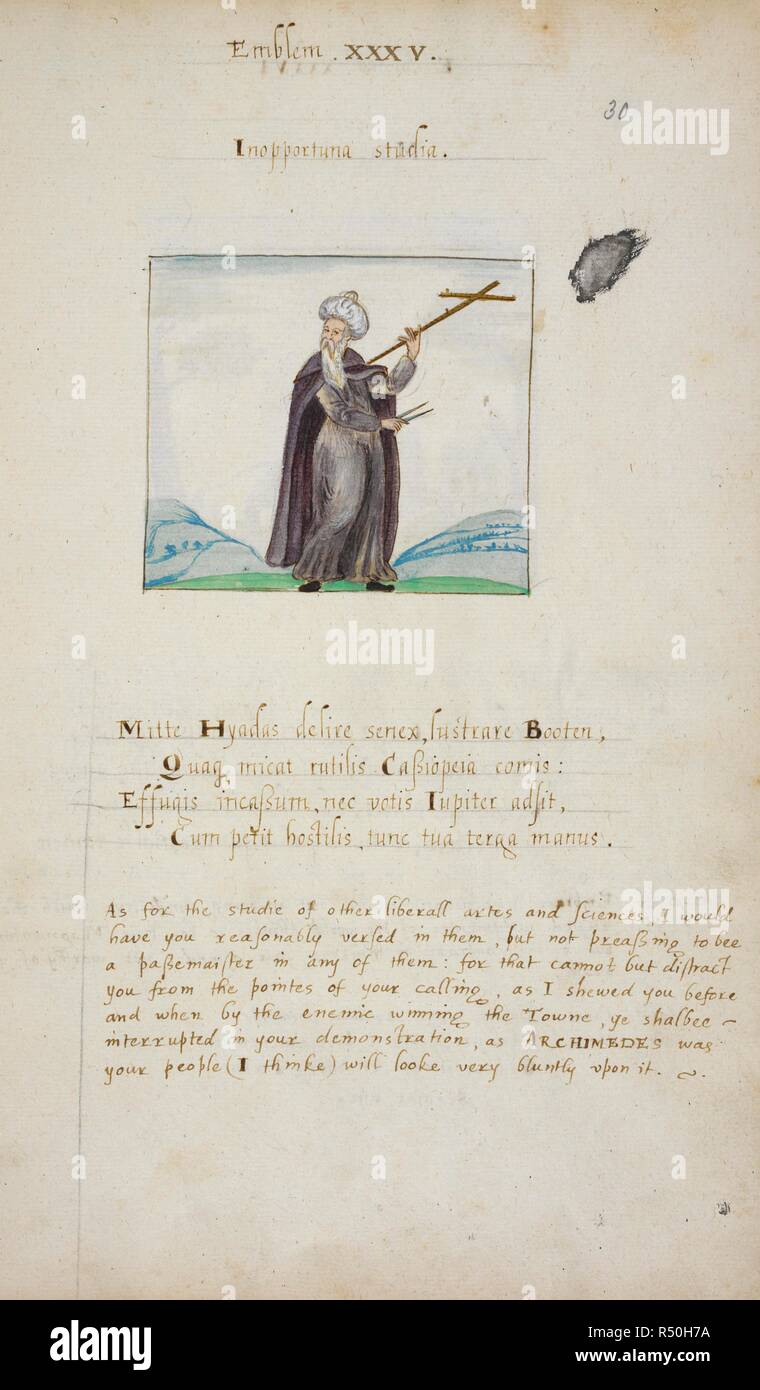 Emblem . XXXV.
30
Inopportuna studia.
Mitte Hyadas delire senex, lustrare Booten,
Quaq, micat rutilis Caßiopeia comis:
Effugis incaßum, nec votis Iupiter adsit,
Cum petit hostilis, tunc tua terga manus.
As for the studie of other liberall artes and sciences, I would
have you reasonably versed in them, but not preaßing to bee
a paßemaister in any of them: for that cannot but distract
you from the pointes of your calling, as I shewed you before
and when by the enemie winning the Towne, ye shalbee
interrupted in your demonstration, as ARCHIMEDES was
your people (I thinke) will looke very bluntly vpon it.
alamy
Image ID: R50H7A
www.alamy.com